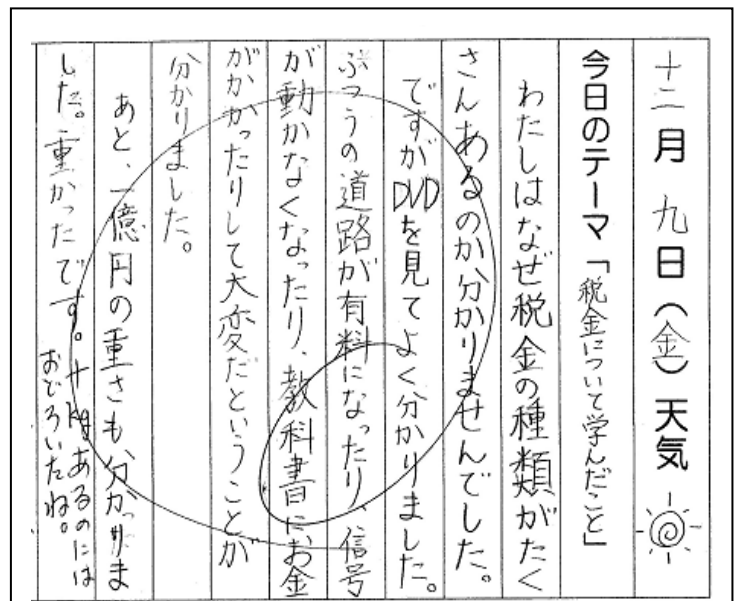 十二月 九日(金)天気
今日のテーマ「税金について学んだこと」
わたしはなぜ税金の種類がたく
さんあるのか分かりませんでした。
ですがDVDを見てよく分かりました。
ふつうの道路が有料になったり、信号
が動かなくなったり、教科書にお金
がかかったりして大変だということが
分かりました。
あと、一億円の重さも分かりま
した。重かったです。
十kgあるのには
おどろいたね。